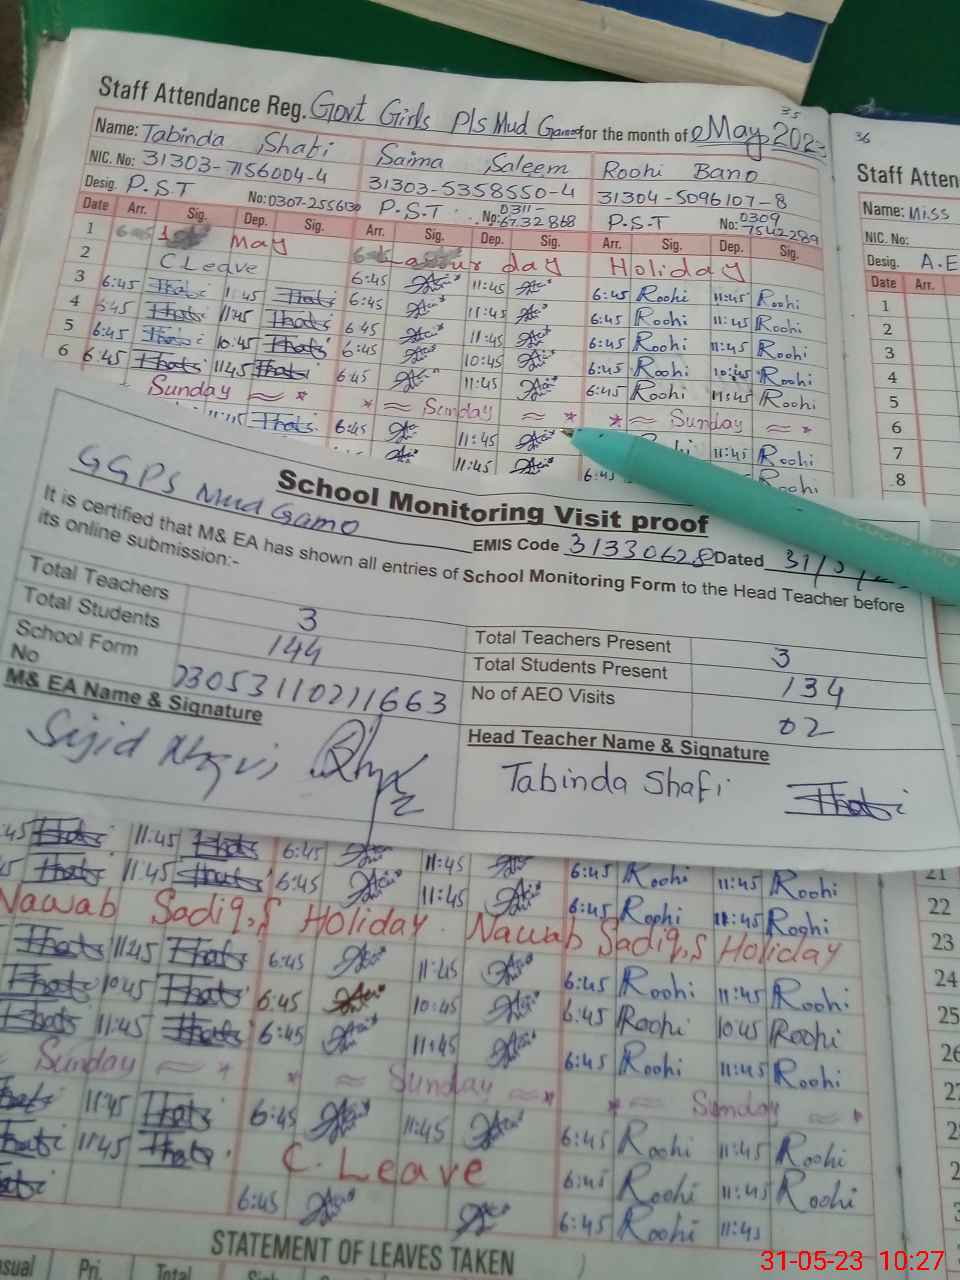 35
Staff Attendance Reg. Govt Girls P/s Mud Gamo for the month of May 2023
Name: Tabinda Shafi Saima Saleem Roohi Bano
NIC. No: 31303-7156004-4 31303-5358550-4 31304-5096107-8
Desig. P.S.T No: 0307-2556130 P.S.T No: 0311-6732868 P.S.T No: 0309 7542289
Date Arr. Sig. Dep. Sig. Arr. Sig. Dep. Sig. Arr. Sig. Dep. Sig.
1 May Labour day Holiday
2 C Leave 6:45 11:45 6:45 Roohi 11:45 Roohi
3 6:45 11:45 6:45 11:45 6:45 Roohi 11:45 Roohi
4 6:45 11:45 6:45 11:45 6:45 Roohi 11:45 Roohi
5 6:45 10:45 6:45 10:45 6:45 Roohi 10:45 Roohi
6 6:45 11:45 6:45 11:45 6:45 Roohi 11:45 Roohi
Sunday Sunday Sunday
11:45 6:45 11:45 11:45 Roohi
11:45 6:45
36
Staff Atten
Name: Miss
NIC. No:
Desig. A.E
Date Arr.
1
2
3
4
5
6
7
8
School Monitoring Visit proof
GGPS Mud Gamo EMIS Code 31330628 Dated 31/5/
It is certified that M& EA has shown all entries of School Monitoring Form to the Head Teacher before
its online submission:-
Total Teachers 3 Total Teachers Present 3
Total Students 144 Total Students Present 134
School Form No 23053110211663 No of AEO Visits 02
M& EA Name & Signature Head Teacher Name & Signature
Sajid Naqvi Tabinda Shafi
:45 11:45 6:45 11:45 6:45 Roohi 11:45 Roohi
11:45 6:45 11:45 6:45 Roohi 11:45 Roohi
Nawab Sadiq,s Holiday. Nawab Sadiq,s Holiday
11:45 6:45 11:45 6:45 Roohi 11:45 Roohi
10:45 6:45 10:45 6:45 Roohi 10:45 Roohi
11:45 6:45 11:45 6:45 Roohi 11:45 Roohi
Sunday Sunday Sunday
11:45 6:45 11:45 6:45 Roohi 11:45 Roohi
11:45 C. Leave 6:45 Roohi 11:45 Roohi
6:45 6:45 Roohi 11:45
21
22
23
24
25
26
STATEMENT OF LEAVES TAKEN
asual Pri. Total
31-05-23 10:27